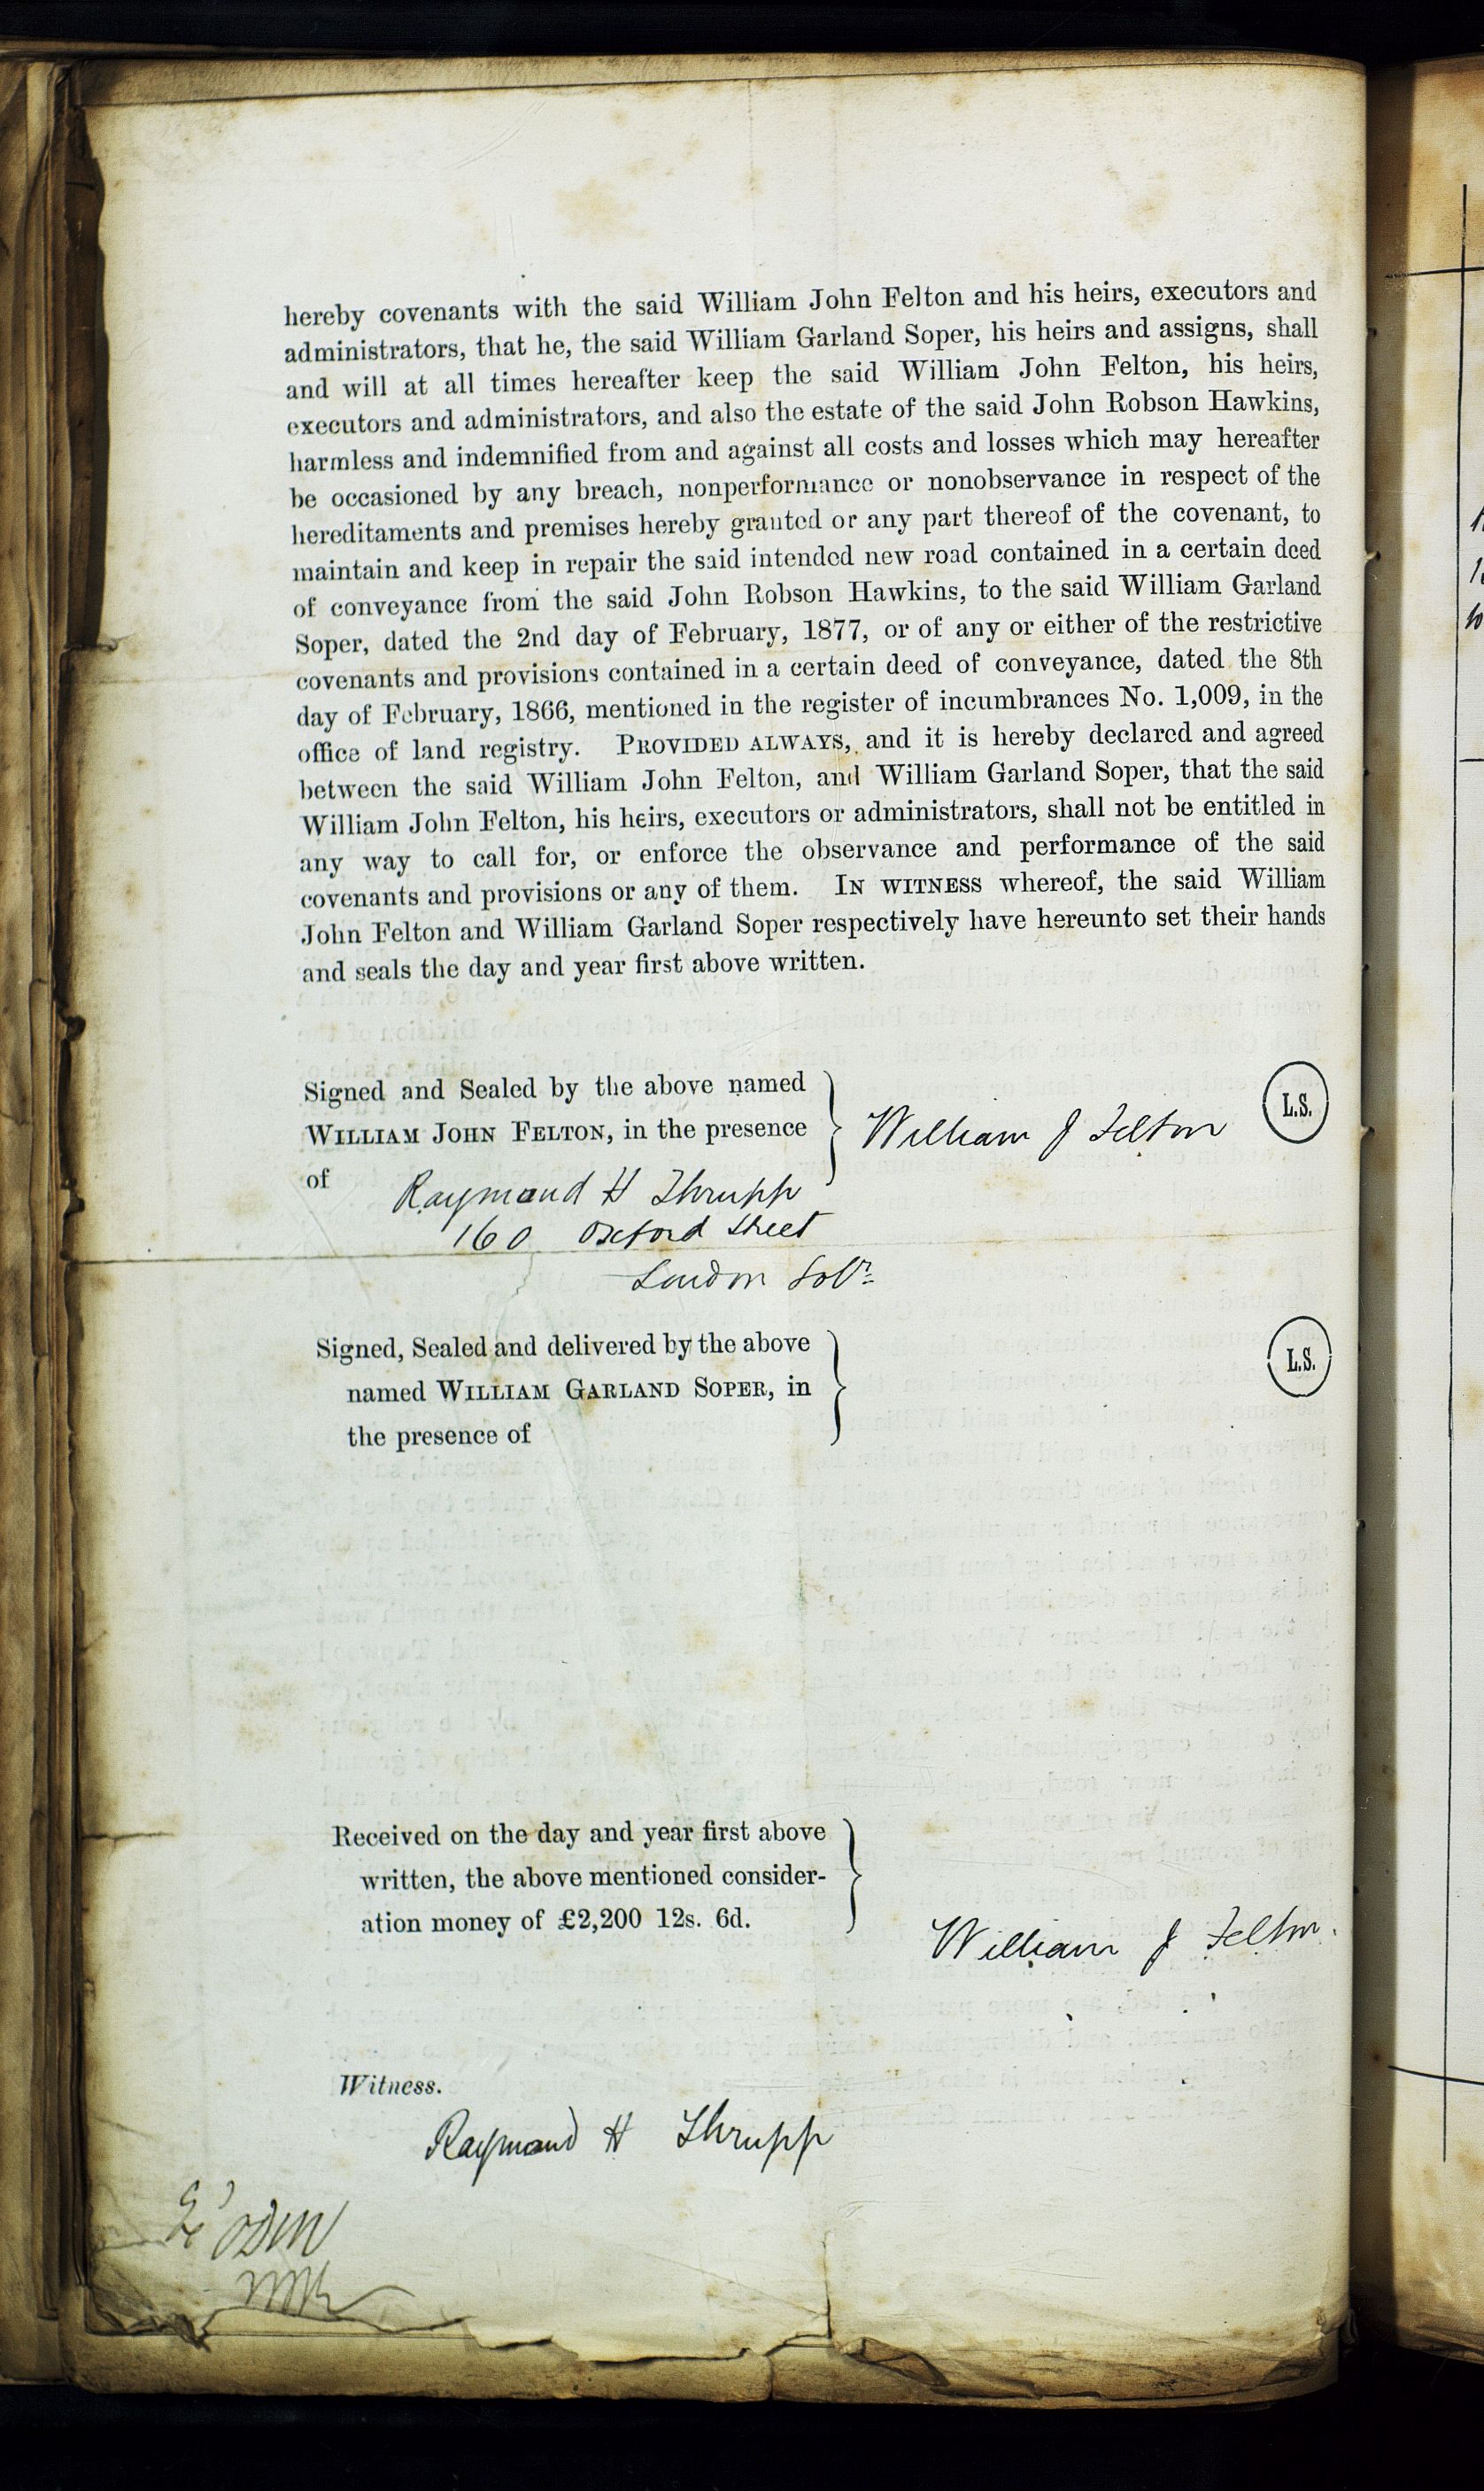 hereby covenants with the said William John Felton and his heirs, executors and
administrators, that he, the said William Garland Soper, his heirs and assigns, shall
and will at all times hereafter keep the said William John Felton, his heirs,
executors and administrators, and also the estate of the said John Robson Hawkins,
harmless and indemnified from and against all costs and losses which may hereafter
be occasioned by any breach, nonperformance or nonobservance in respect of the
hereditaments and premises hereby granted or any part thereof of the covenant, to
maintain and keep in repair the said intended new road contained in a certain deed
of conveyance from the said John Robson Hawkins, to the said William Garland
Soper, dated the 2nd day of February, 1877, or of any or either of the restrictive
covenants and provisions contained in a certain deed of conveyance, dated the 8th
day of February, 1866, mentioned in the register of incumbrances No. 1,009, in the
office of land registry. PROVIDED ALWAYS, and it is hereby declared and agreed
between the said William John Felton, and William Garland Soper, that the said
William John Felton, his heirs, executors or administrators, shall not be entitled in
any way to call for, or enforce the observance and performance of the said
covenants and provisions or any of them. IN WITNESS whereof, the said William
John Felton and William Garland Soper respectively have hereunto set their hands
and seals the day and year first above written.
Signed and Sealed by the above named
WILLIAM JOHN FELTON, in the presence
of
William J Felton
L.S.
Raymond H Thrupp
160 Oxford Street
London Solr
Signed, Sealed and delivered by the above
named WILLIAM GARLAND SOPER, in
the presence of
L.S.
Received on the day and year first above
written, the above mentioned consider-
ation money of £2,200 12s. 6d.
William J Felton.
Witness.
Raymond H Thrupp